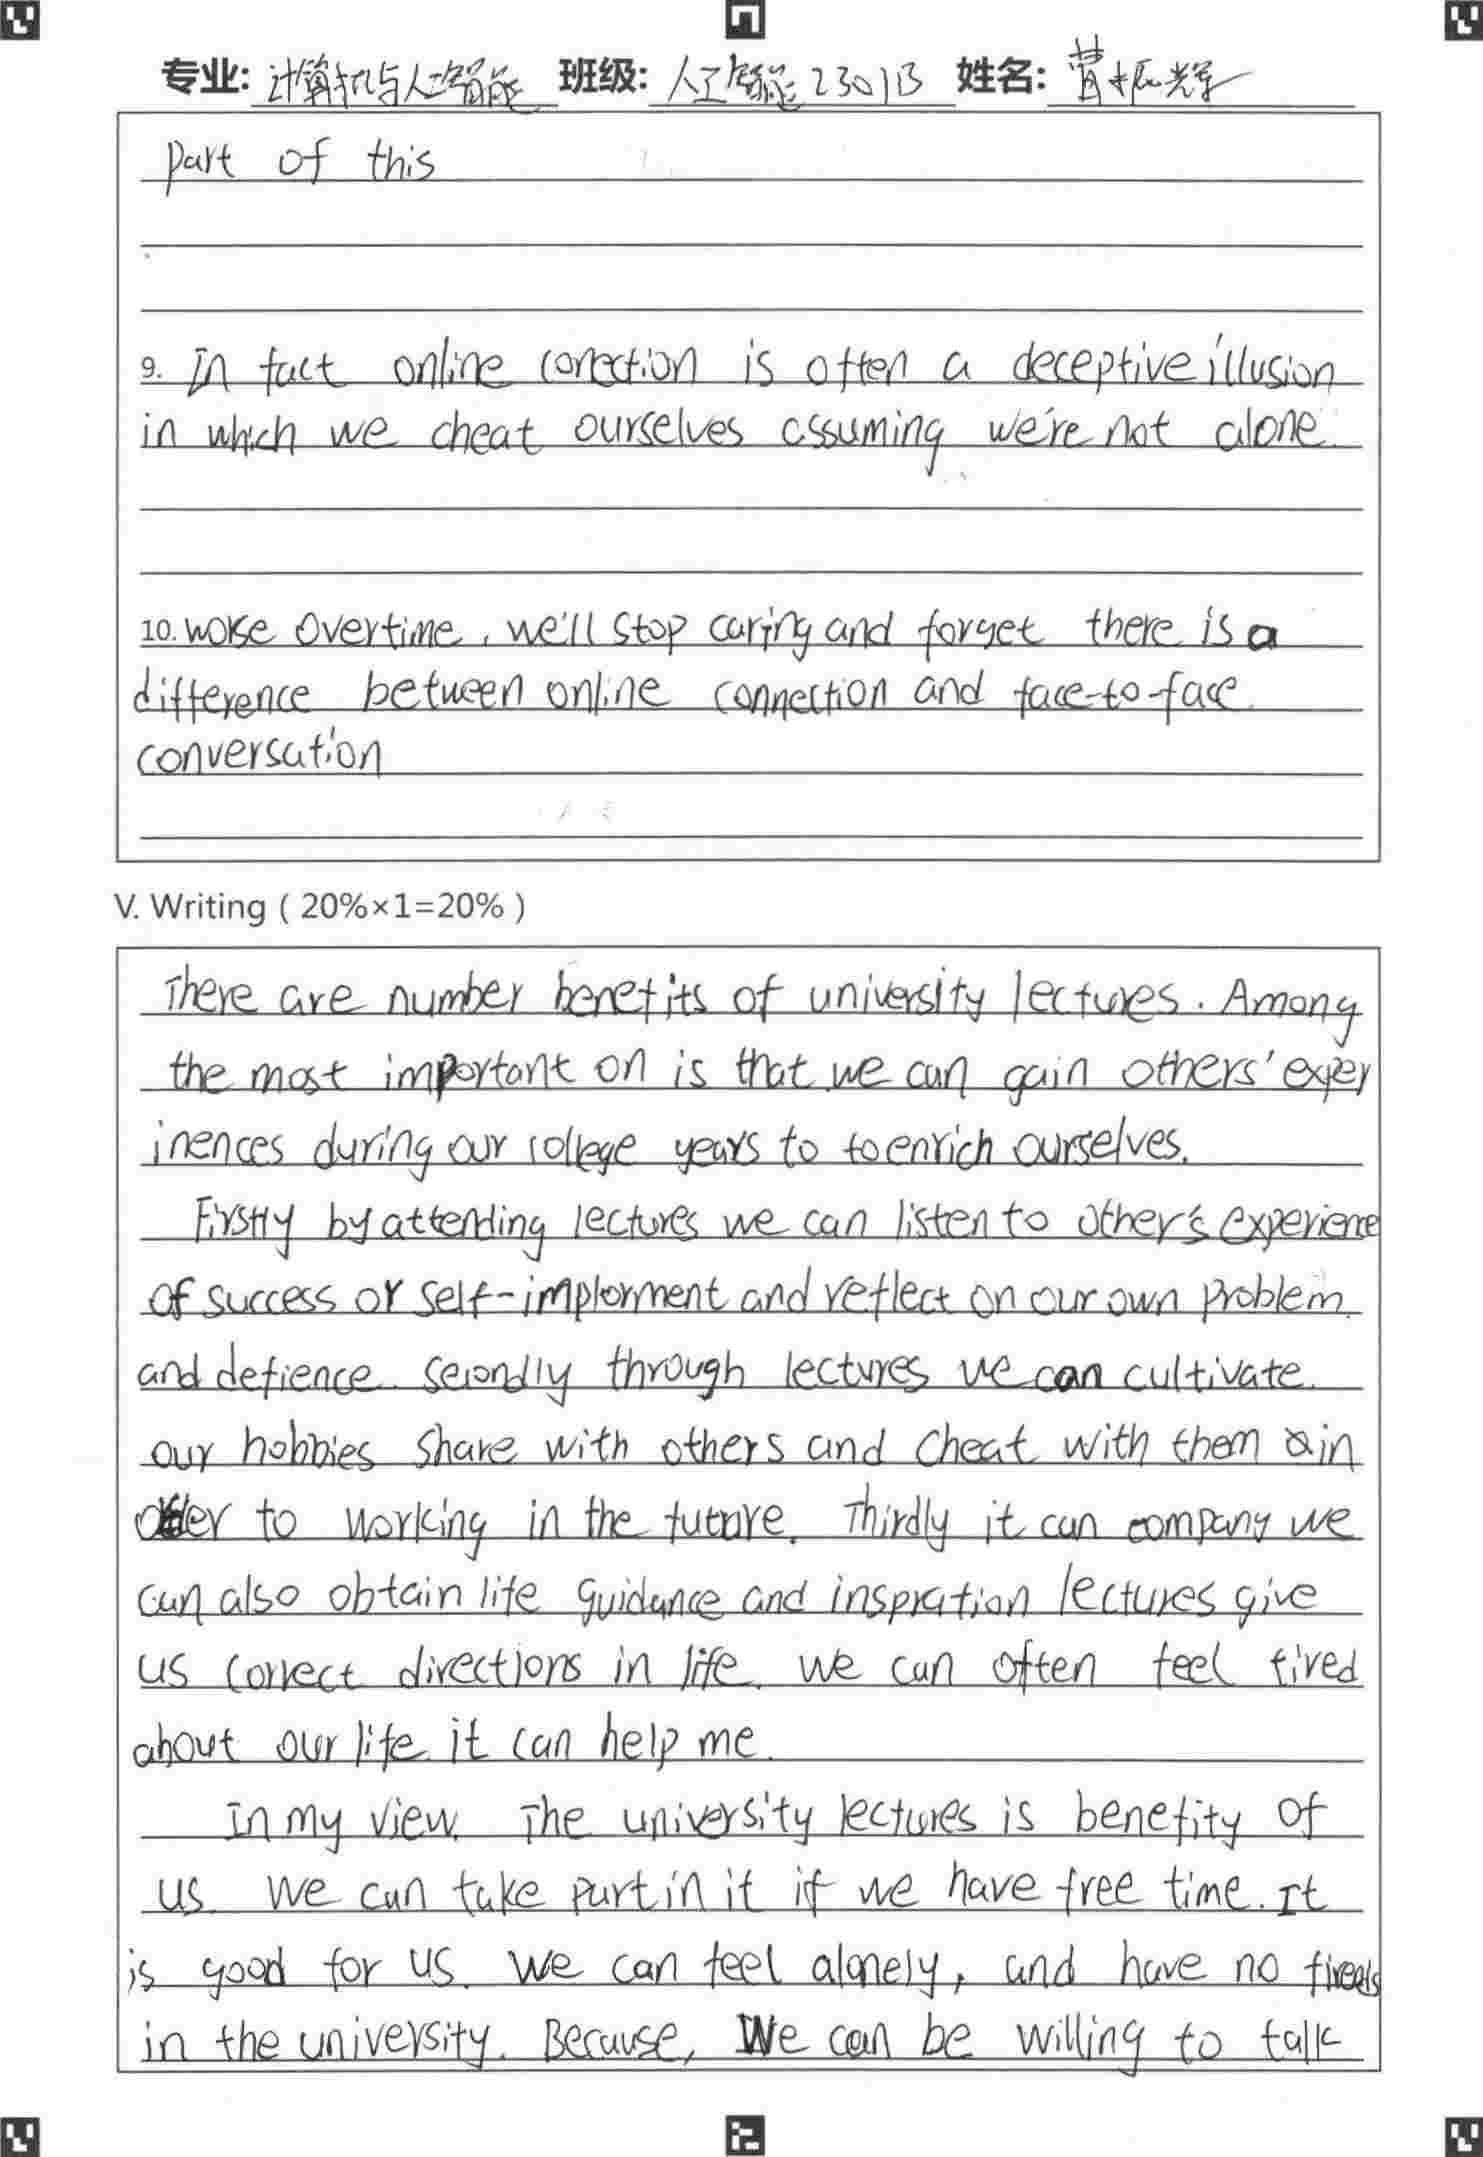 专业: 计算机与人工智能 班级: 人工智能2301B 姓名: 曹振辉
part of this
9. In fact online conection is often a deceptive illusion
in which we cheat ourselves assuming we're not alone.
10. worse overtime, we'll stop caring and forget there is a
difference between online connection and face-to-face
conversation
V. Writing ( 20%×1=20% )
There are number benefits of university lectures. Among
the most important on is that we can gain others' exper
inences during our college years to to enrich ourselves.
Firstly by attending lectures we can listen to other's experience
of success or self-implorment and reflect on our own problem
and defience. Secondly through lectures we can cultivate
our hobbies share with others and cheat with them in
order to working in the future. Thirdly it can company we
can also obtain life guidance and inspration lectures give
us correct directions in life. we can often feel tired
about our life it can help me.
In my view. The university lectures is benefity of
us. We can take part in it if we have free time. It
is good for us. We can feel alonely, and have no fireds
in the university. Because, We can be willing to talk